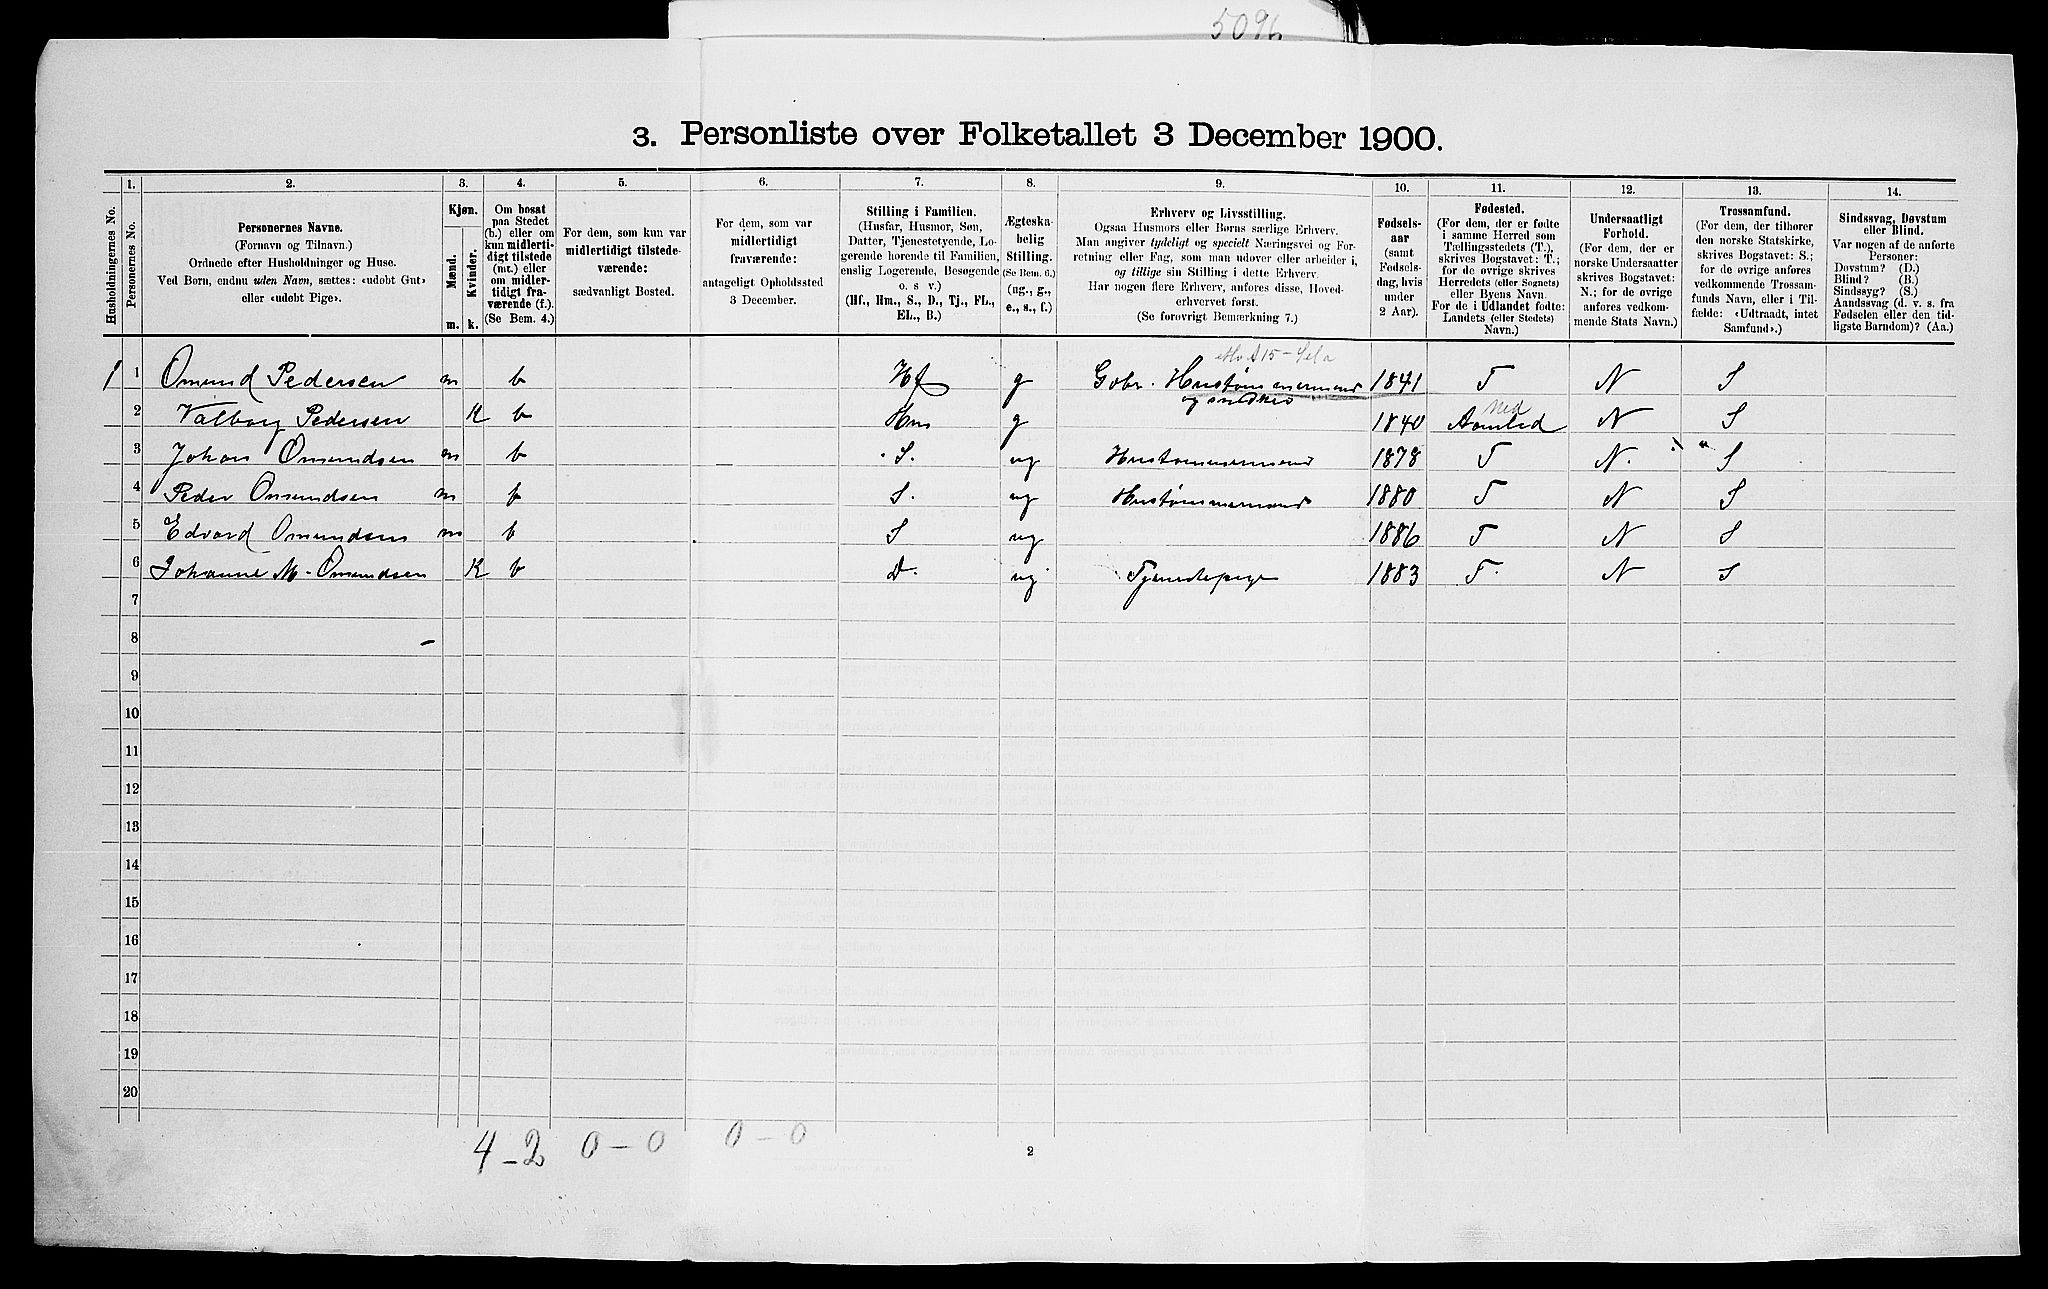 5096
3. Personliste over Folketallet 3 December 1900.
1. 2. 3. 4. 5. 6. 7. 8. 9. 10. 11. 12. 13. 14.
Husholdningernes No.
Personernes No.
Personernes Navne.
(Fornavn og Tilnavn.)
Ordnede efter Husholdninger og Huse.
Ved Børn, endnu uden Navn, sættes: «udøbt Gut»
eller «udøbt Pige».
Kjøn.
Mænd.
Kvinder.
m. k.
Om bosat
paa Stedet
(b.) eller om
kun midlerti-
digt tilstede
(mt.) eller
om midler-
tidigt fra-
værende (f.).
(Se Bem. 4.)
For dem, som kun var
midlertidigt tilstede-
værende:
sædvanligt Bosted.
For dem, som var
midlertidigt
fraværende:
antageligt Opholdssted
3 December.
Stilling i Familien.
(Husfar, Husmor, Søn,
Datter, Tjenestetyende, Lo-
gerende hørende til Familien,
enslig Logerende, Besøgende
o. s. v.)
(Hf., Hm., S., D., Tj., FL.,
EL., B.)
Ægteska-
belig
Stilling.
(Se Bem. 6.)
(ug., g.,
e., s., f.)
Erhverv og Livsstilling.
Ogsaa Husmors eller Børns særlige Erhverv.
Man angiver tydeligt og specielt Næringsvei og For-
retning eller Fag, som man udøver eller arbeider i,
og tillige sin Stilling i dette Erhverv.
Har nogen flere Erhverv, anføres disse, Hoved-
erhvervet først.
(Se forøvrigt Bemærkning 7.)
Fødsels-
aar
(samt
Fødsels-
dag, hvis
under
2 Aar).
Fødested.
(For dem, der er fødte
i samme Herred som
Tællingsstedets (T.),
skrives Bogstavet: T.;
for de øvrige skrives
Herredets (eller Sognets)
eller Byens Navn.
For de i Udlandet fødte:
Landets (eller Stedets)
Navn.)
Undersaatligt
Forhold.
(For dem, der er
norske Undersaatter
skrives Bogstavet:
N.; for de øvrige
anføres vedkom-
mende Stats Navn.)
Trossamfund.
(For dem, der tilhører
den norske Statskirke,
skrives Bogstavet: S.;
for de øvrige anføres
vedkommende Trossam-
funds Navn, eller i Til-
fælde: «Udtraadt, intet
Samfund».)
Sindssvag, Døvstum
eller Blind.
Var nogen af de anførte
Personer:
Døvstum? (D.)
Blind? (B.)
Sindssyg? (S.)
Aandssvag (d. v. s. fra
Fødselen eller den tid-
ligste Barndom)? (Aa.)
1 1 Omund Pedersen m b Hf g Hustømmermand 1841 T N S
og snedker
2 Valborg Pedersen K b Hm g 1840 N S
3 Johan Omundsen m b S. ug Hustømmermand 1878 T N. S
4 Peder Omundsen m b S. ug Hustømmermand 1880 T N S
5 Edvard Omundsen m b S ug 1886 T N S
6 Johanne M. Omundsen K b D. ug Tjenestepige 1883 T. N S
7
8
9
10
11
12
13
14
15
16
17
18
19
20
4-2 0-0 0-0
2